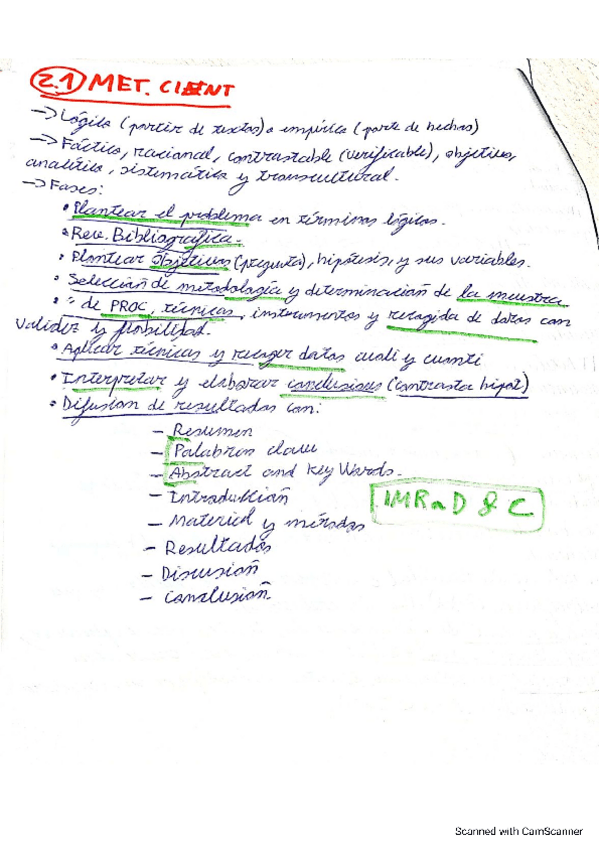 2.1) MET. CIENT
→ Lógica (partir de textos) o empírica (parte de hechos)
→ Fáctico, racional, contrastable (verificable), objetivo,
analítico, sistemático y transcultural.
→ Fases:
• Plantear el problema en términos lógicos.
• Rev. Bibliográfica.
• Plantear objetivos (pregunta), hipótesis, y sus variables.
• Selección de metodología y determinación de la muestra
• " de PROC, técnicas, instrumentos y recogida de datos con
validez y fiabilidad.
• Aplicar técnicas y recoger datos cuali y cuanti
• Interpretar y elaborar conclusiones (contrastar hipót)
• Difusión de resultados con:
- Resumen
- Palabras clave
- Abstract and Key Words.
- Introducción
- Material y métodos
IMRaD & C
- Resultados
- Discusión
- Conclusión
Scanned with CamScanner